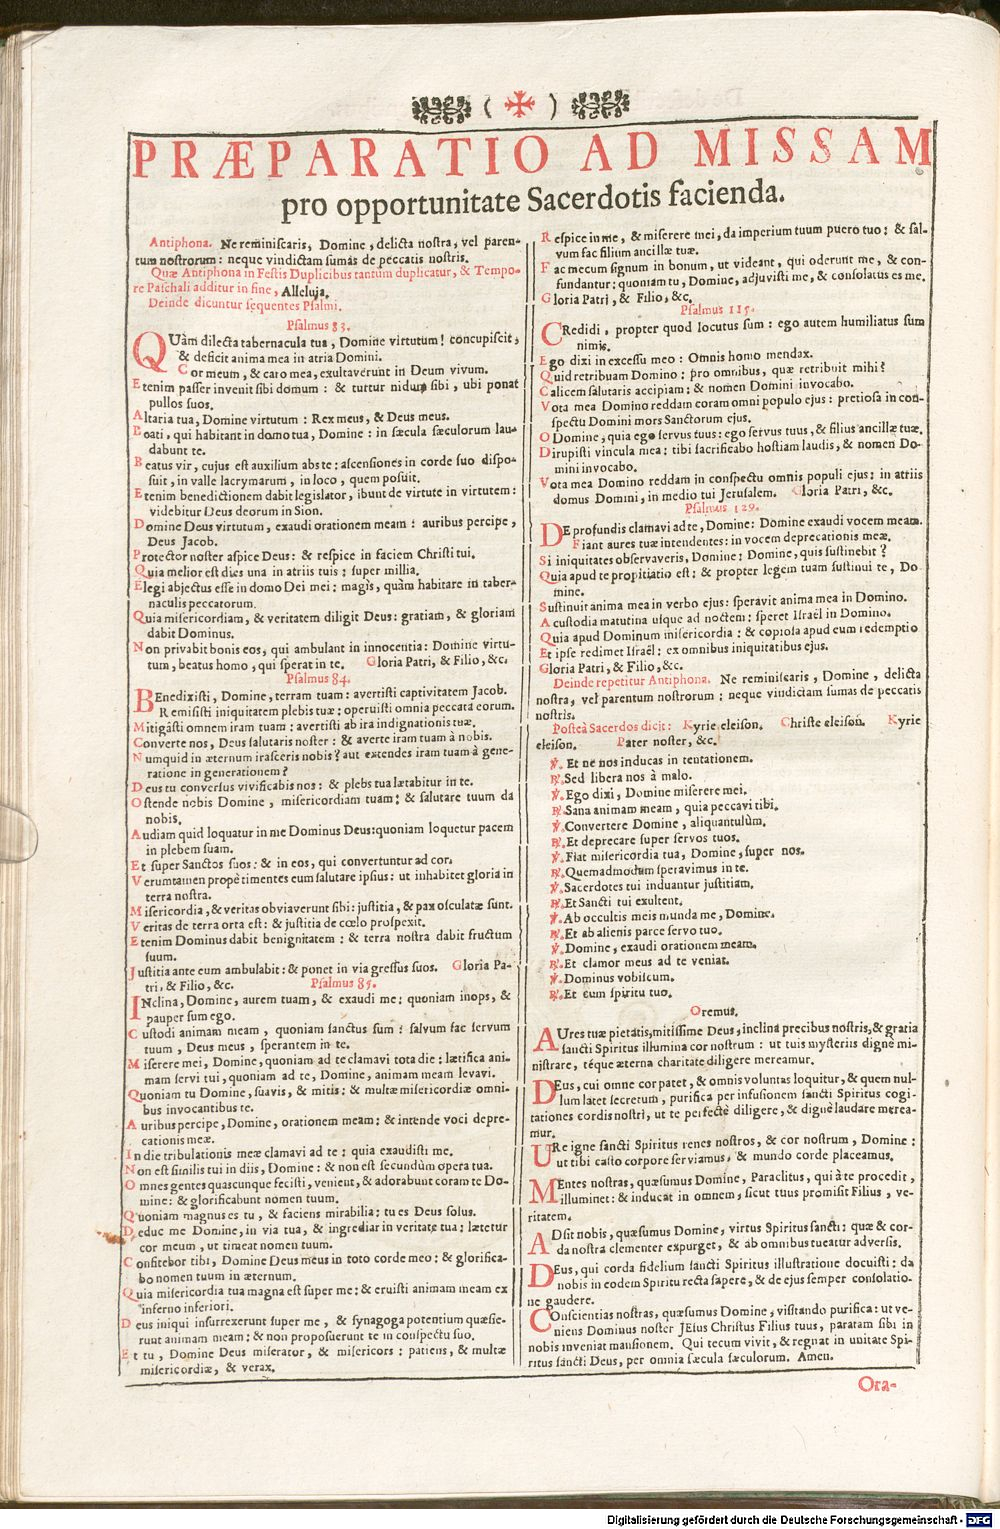 ( ✠ )
PRÆPARATIO AD MISSAM
pro opportunitate Sacerdotis facienda.
Antiphona. Ne reminiſcaris, Domine, delicta noſtra, vel paren-
tum noſtrorum: neque vindictam ſumas de peccatis noſtris.
Quæ Antiphona in Feſtis Duplicibus tantum duplicatur, & Tempo-
re Paſchali additur in fine, Alleluja.
Deinde dicuntur ſequentes Pſalmi.
Pſalmus 83.
QUàm dilecta tabernacula tua, Domine virtutum! concupiſcit,
& deficit anima mea in atria Domini.
Cor meum, & caro mea, exultaverunt in Deum vivum.
Etenim paſſer invenit ſibi domum: & turtur nidum ſibi, ubi ponat
pullos ſuos.
Altaria tua, Domine virtutum: Rex meus, & Deus meus.
Beati, qui habitant in domo tua, Domine: in ſæcula ſæculorum lau-
dabunt te.
Beatus vir, cujus eſt auxilium abs te: aſcenſiones in corde ſuo diſpo-
ſuit, in valle lacrymarum, in loco, quem poſuit.
Etenim benedictionem dabit legislator, ibunt de virtute in virtutem:
videbitur Deus deorum in Sion.
Domine Deus virtutum, exaudi orationem meam: auribus percipe,
Deus Jacob.
Protector noſter aſpice Deus: & reſpice in faciem Chriſti tui.
Quia melior eſt dies una in atriis tuis: ſuper millia.
Elegi abjectus eſſe in domo Dei mei: magis, quàm habitare in taber-
naculis peccatorum.
Quia miſericordiam, & veritatem diligit Deus: gratiam, & gloriam
dabit Dominus.
Non privabit bonis eos, qui ambulant in innocentia: Domine virtu-
tum, beatus homo, qui ſperat in te. Gloria Patri, & Filio, &c.
Pſalmus 84.
BEnedixiſti, Domine, terram tuam: avertiſti captivitatem Jacob.
Remiſiſti iniquitatem plebis tuæ: operuiſti omnia peccata eorum.
Mitigâſti omnem iram tuam: avertiſti ab ira indignationis tuæ.
Converte nos, Deus ſalutaris noſter: & averte iram tuam à nobis.
Numquid in æternum iraſceris nobis? aut extendes iram tuam à gene-
ratione in generationem?
Deus tu converſus vivificabis nos: & plebs tua lætabitur in te.
Oſtende nobis Domine, miſericordiam tuam: & ſalutare tuum da
nobis.
Audiam quid loquatur in me Dominus Deus: quoniam loquetur pacem
in plebem ſuam.
Et ſuper Sanctos ſuos: & in eos, qui convertuntur ad cor.
Verumtamen propè timentes eum ſalutare ipſius: ut inhabitet gloria in
terra noſtra.
Miſericordia, & veritas obviaverunt ſibi: juſtitia, & pax oſculatæ ſunt.
Veritas de terra orta eſt: & juſtitia de cœlo proſpexit.
Etenim Dominus dabit benignitatem: & terra noſtra dabit fructum
ſuum.
Juſtitia ante eum ambulabit: & ponet in via greſſus ſuos. Gloria Pa-
tri, & Filio, &c. Pſalmus 85.
INclina, Domine, aurem tuam, & exaudi me: quoniam inops, &
pauper ſum ego.
Cuſtodi animam meam, quoniam ſanctus ſum: ſalvum fac ſervum
tuum, Deus meus, ſperantem in te.
Miſerere mei, Domine, quoniam ad te clamavi tota die: lætifica ani-
mam ſervi tui, quoniam ad te, Domine, animam meam levavi.
Quoniam tu Domine, ſuavis, & mitis: & multæ miſericordiæ omni-
bus invocantibus te.
Auribus percipe, Domine, orationem meam: & intende voci depre-
cationis meæ.
In die tribulationis meæ clamavi ad te: quia exaudiſti me.
Non eſt ſimilis tui in diis, Domine: & non eſt ſecundùm opera tua.
Omnes gentes quascunque feciſti, venient, & adorabunt coram te Do-
mine: & glorificabunt nomen tuum.
Quoniam magnus es tu, & faciens mirabilia: tu es Deus ſolus.
Deduc me Domine, in via tua, & ingrediar in veritate tua: lætetur
cor meum, ut timeat nomen tuum.
Confitebor tibi, Domine Deus meus in toto corde meo: & glorifica-
bo nomen tuum in æternum.
Quia miſericordia tua magna eſt ſuper me: & eruiſti animam meam ex
inferno inferiori.
Deus iniqui inſurrexerunt ſuper me, & ſynagoga potentium quæſie-
runt animam meam: & non propoſuerunt te in conſpectu ſuo.
Et tu, Domine Deus miſerator, & miſericors: patiens, & multæ
miſericordiæ, & verax.
Reſpice in me, & miſerere mei, da imperium tuum puero tuo: & ſal-
vum fac filium ancillæ tuæ.
Fac mecum ſignum in bonum, ut videant, qui oderunt me, & con-
fundantur: quoniam tu, Domine, adjuviſti me, & conſolatus es me.
Gloria Patri, & Filio, &c.
Pſalmus 115.
CRedidi, propter quod locutus ſum: ego autem humiliatus ſum
nimis.
Ego dixi in exceſſu meo: Omnis homo mendax.
Quid retribuam Domino: pro omnibus, quæ retribuit mihi?
Calicem ſalutaris accipiam: & nomen Domini invocabo.
Vota mea Domino reddam coram omni populo ejus: pretioſa in con-
ſpectu Domini mors Sanctorum ejus.
O Domine, quia ego ſervus tuus: ego ſervus tuus, & filius ancillæ tuæ.
Dirupiſti vincula mea: tibi ſacrificabo hoſtiam laudis, & nomen Do-
mini invocabo.
Vota mea Domino reddam in conſpectu omnis populi ejus: in atriis
domus Domini, in medio tui Jeruſalem. Gloria Patri, &c.
Pſalmus 129.
DE profundis clamavi ad te, Domine: Domine exaudi vocem meam.
Fiant aures tuæ intendentes: in vocem deprecationis meæ.
Si iniquitates obſervaveris, Domine: Domine, quis ſuſtinebit?
Quia apud te propitiatio eſt: & propter legem tuam ſuſtinui te, Do-
mine.
Suſtinuit anima mea in verbo ejus: ſperavit anima mea in Domino.
A cuſtodia matutina uſque ad noctem: ſperet Iſraël in Domino.
Quia apud Dominum miſericordia: & copioſa apud eum redemptio
Et ipſe redimet Iſraël: ex omnibus iniquitatibus ejus.
Gloria Patri, & Filio, &c.
Deinde repetitur Antiphona. Ne reminiſcaris, Domine, delicta
noſtra, vel parentum noſtrorum: neque vindictam ſumas de peccatis
noſtris.
Poſteà Sacerdos dicit: Kyrie eleiſon. Chriſte eleiſon. Kyrie
eleiſon. Pater noſter, &c.
℣. Et ne nos inducas in tentationem.
℟. Sed libera nos à malo.
℣. Ego dixi, Domine miſerere mei.
℟. Sana animam meam, quia peccavi tibi.
℣. Convertere Domine, aliquantulùm.
℟. Et deprecare ſuper ſervos tuos.
℣. Fiat miſericordia tua, Domine, ſuper nos.
℟. Quemadmodum ſperavimus in te.
℣. Sacerdotes tui induantur juſtitiam.
℟. Et Sancti tui exultent.
℣. Ab occultis meis munda me, Domine.
℟. Et ab alienis parce ſervo tuo.
℣. Domine, exaudi orationem meam.
℟. Et clamor meus ad te veniat.
℣. Dominus vobiſcum.
℟. Et cum ſpiritu tuo.
Oremus.
AUres tuæ pietatis, mitiſſime Deus, inclina precibus noſtris, & gratia
ſancti Spiritus illumina cor noſtrum: ut tuis myſteriis dignè mi-
niſtrare, téque æterna charitate diligere mereamur.
DEus, cui omne cor patet, & omnis voluntas loquitur, & quem nul-
lum latet ſecretum, purifica per infuſionem ſancti Spiritus cogi-
tationes cordis noſtri, ut te perfectè diligere, & dignè laudare merea-
mur.
URe igne ſancti Spiritus renes noſtros, & cor noſtrum, Domine:
ut tibi caſto corpore ſerviamus, & mundo corde placeamus.
MEntes noſtras, quæſumus Domine, Paraclitus, qui à te procedit,
illuminet: & inducat in omnem, ſicut tuus promiſit Filius, ve-
ritatem.
ADſit nobis, quæſumus Domine, virtus Spiritus ſancti: quæ & cor-
da noſtra clementer expurget, & ab omnibus tueatur adverſis.
DEus, qui corda fidelium ſancti Spiritus illuſtratione docuiſti: da
nobis in eodem Spiritu recta ſapere, & de ejus ſemper conſolatio-
ne gaudere.
COnſcientias noſtras, quæſumus Domine, viſitando purifica: ut ve-
niens Dominus noſter JEſus Chriſtus Filius tuus, paratam ſibi in
nobis inveniat manſionem. Qui tecum vivit, & regnat in unitate Spi-
ritus ſancti Deus, per omnia ſæcula ſæculorum. Amen.
Ora-
Digitalisierung gefördert durch die Deutsche Forschungsgemeinschaft - DFG